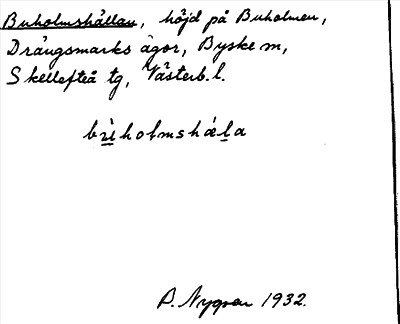 Buholmshällan, höjd på Buholmen,
Drängsmarks ägor, Byske m,
Skellefteå tg, Västerb. l.
holmshäla
P. Nygren 1932.